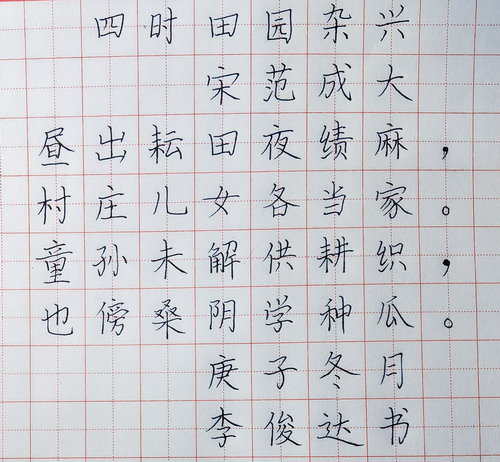 四时田园杂兴
宋范成大
昼出耘田夜绩麻，
村庄儿女各当家。
童孙未解供耕织，
也傍桑阴学种瓜。
庚子冬月
李俊达书